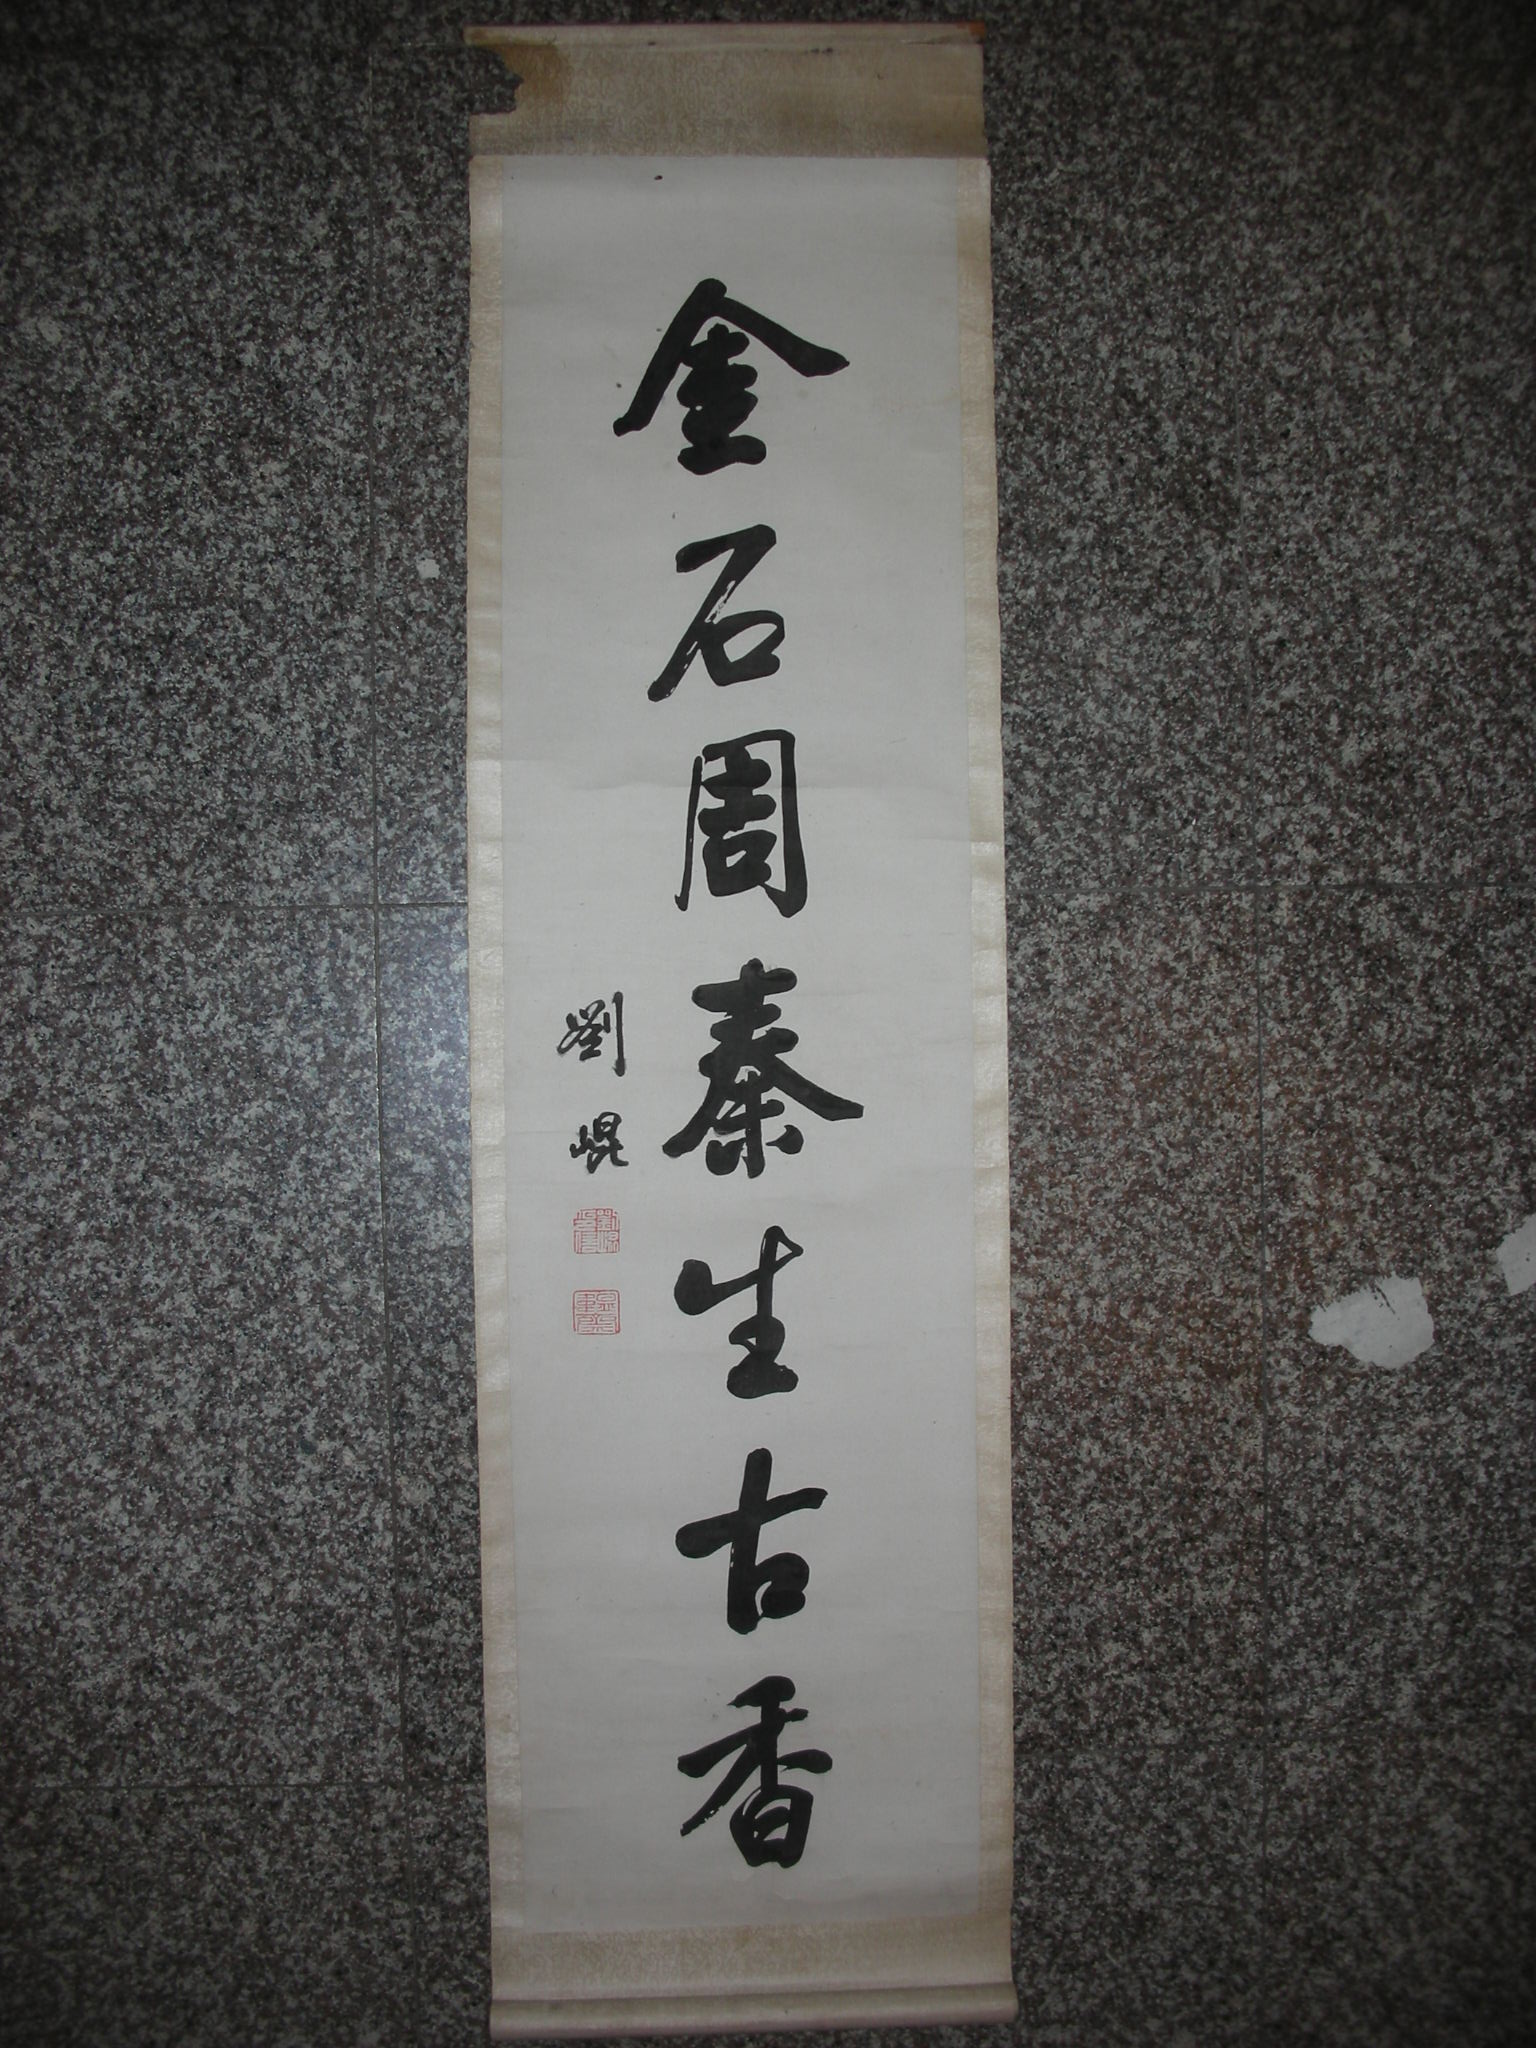 金石周秦生古香
劉崐